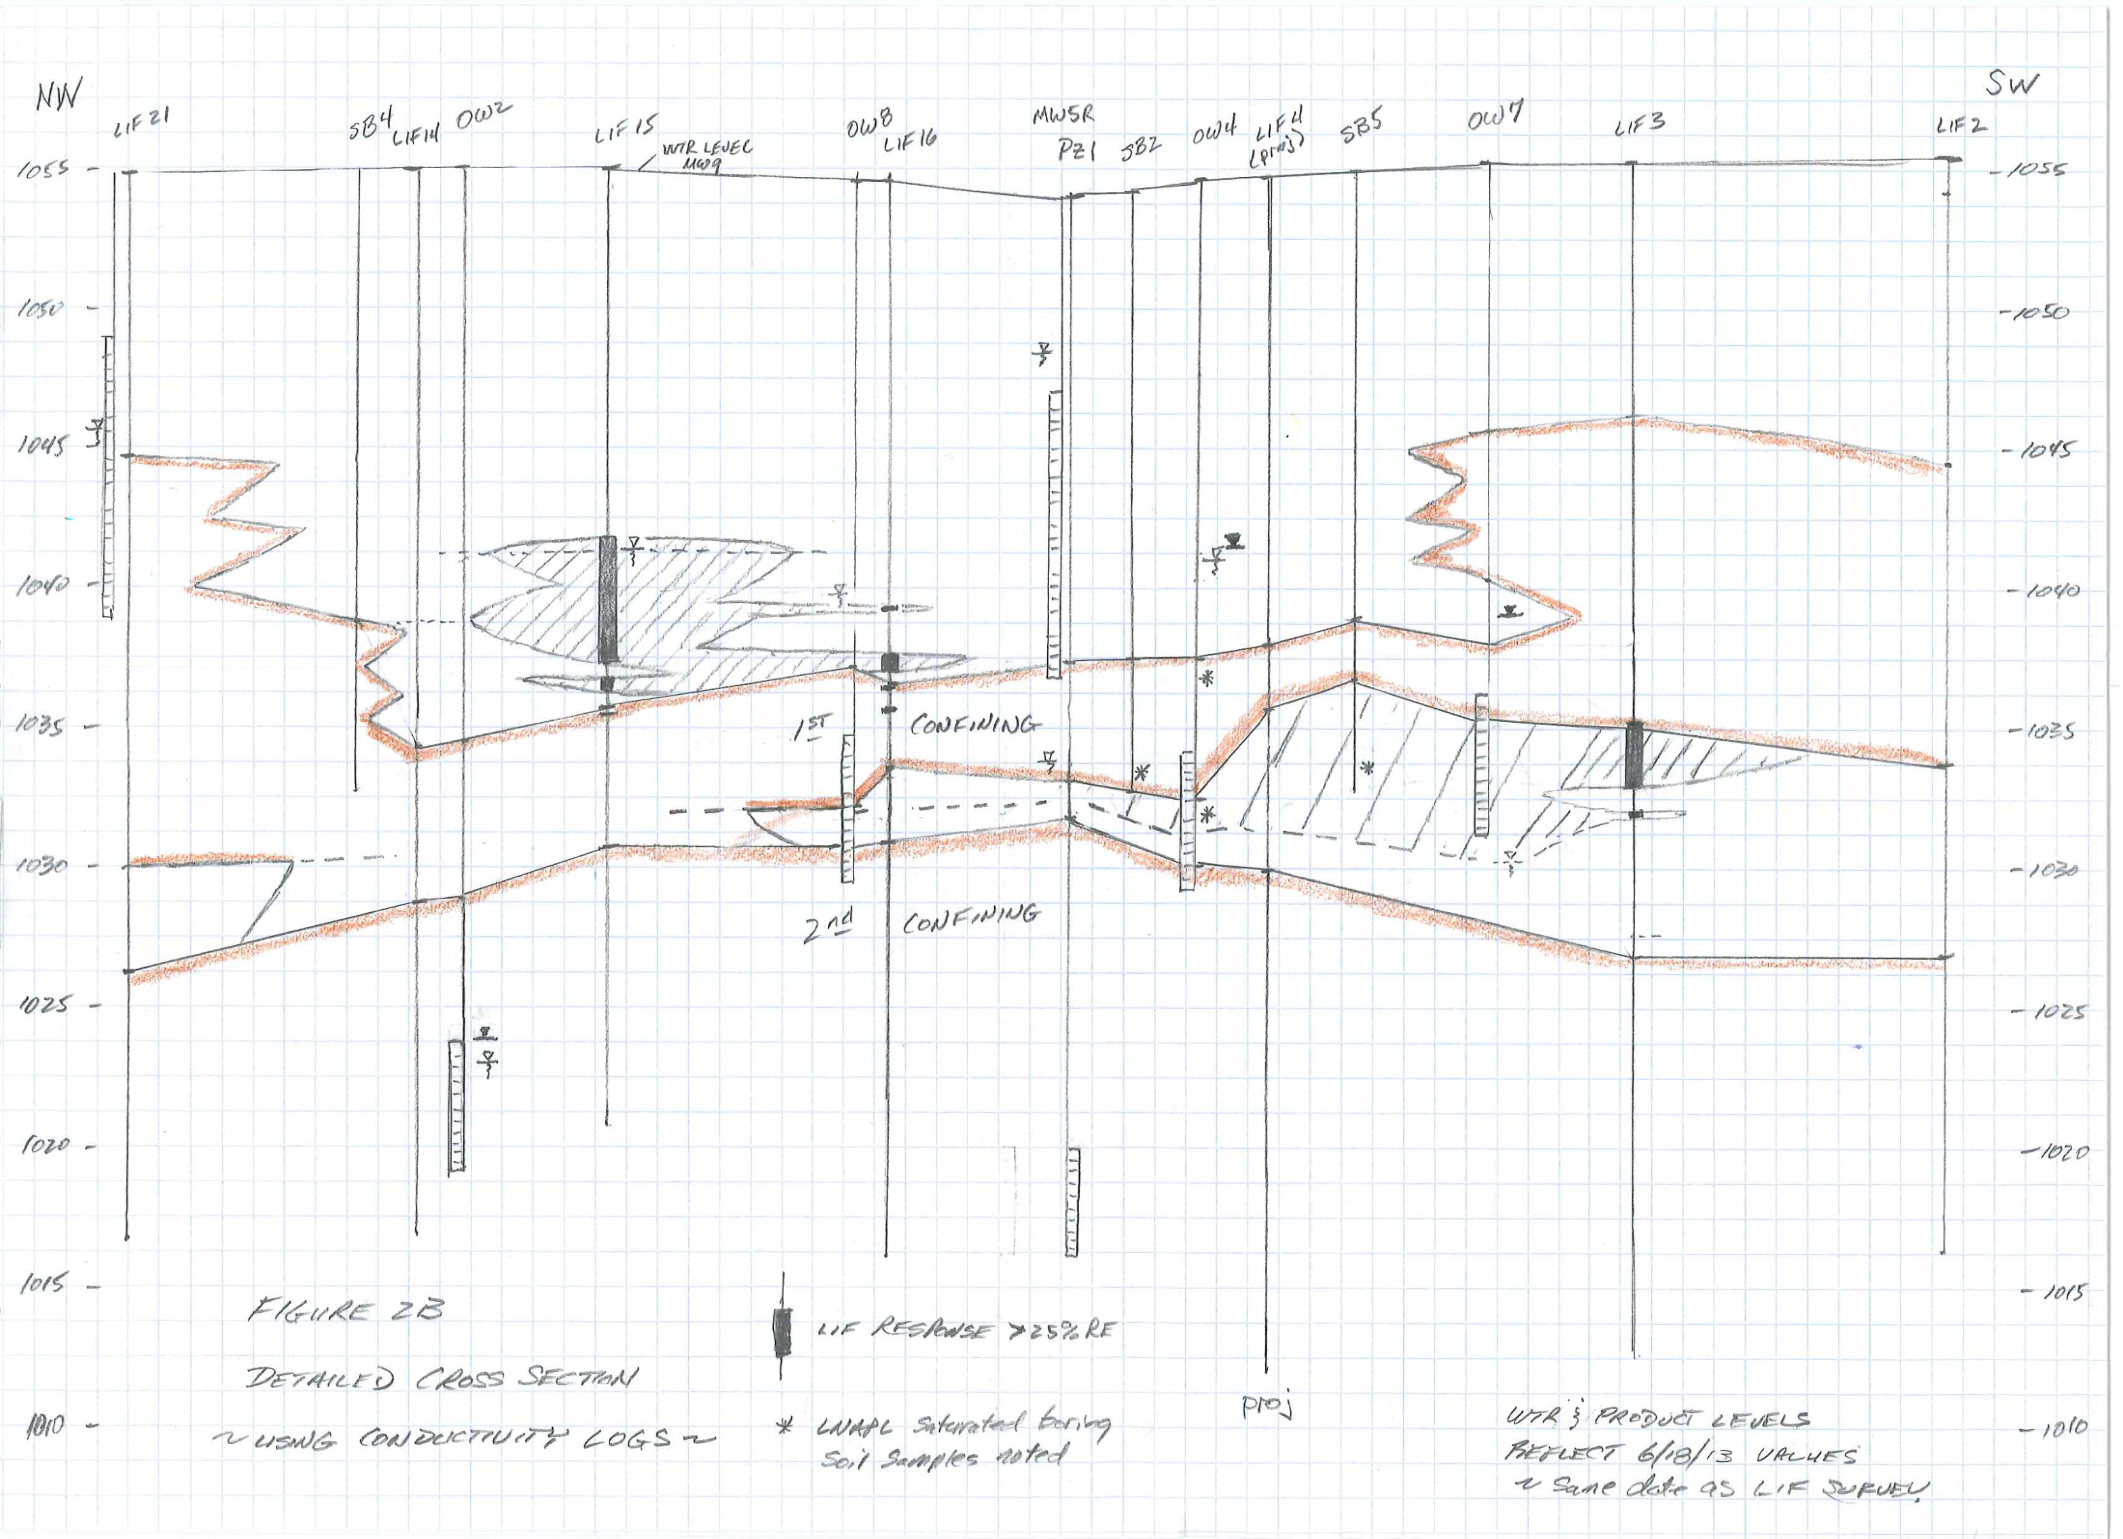 NW
SW
LIF21
SB4
LIF14
OW2
LIF15
WTR LEVEL
MW9
OW8
LIF16
MW5R
PZ1
SB2
OW4
LIF4
(proj)
SB5
OW7
LIF3
LIF2
1055
1050
1045
1040
1035
1030
1025
1020
1015
1010
1055
1050
1045
1040
1035
1030
1025
1020
1015
1010
1ST CONFINING
2nd CONFINING
FIGURE 2B
DETAILED CROSS SECTION
~ USING CONDUCTIVITY LOGS ~
LIF RESPONSE >25%RE
* LNAPL Saturated boring
Soil Samples noted
proj
WTR & PRODUCT LEVELS
REFLECT 6/18/13 VALUES
~ Same date as LIF SURVEY